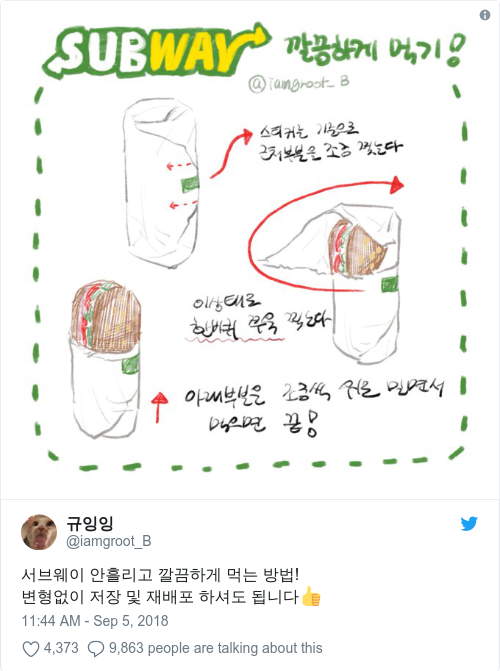 SUBWAY 깔끔하게 먹기!
@iamgroot_B
스티커는 기준으로
근처부분은 조금 찢는다
이상태로
한바퀴 쭈욱 찢는다
아래부분은 조금씩 위로 밀면서
먹으면 끝!
규잉잉
@iamgroot_B
서브웨이 안흘리고 깔끔하게 먹는 방법!
변형없이 저장 및 재배포 하셔도 됩니다👍
11:44 AM - Sep 5, 2018
4,373 9,863 people are talking about this